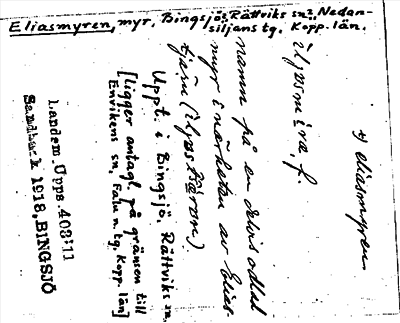 Eliasmyren, myr, Bingsjö, Rättviks sn, Nedan-
siljans tg. Kopp. län.
*) eliasmyren
iljasmira, f.
namn på en delvis odlad
myr i närheten av Elias
tjärn (iljastjärən)
Uppt. i Bingsjö, Rättviks sn,
[ligger antagl. på gränsen till
Envikens sn, Falu n. tg. Kopp. län]
Landsm. Upps. 403:11
Sandback 1918, BINGSJÖ